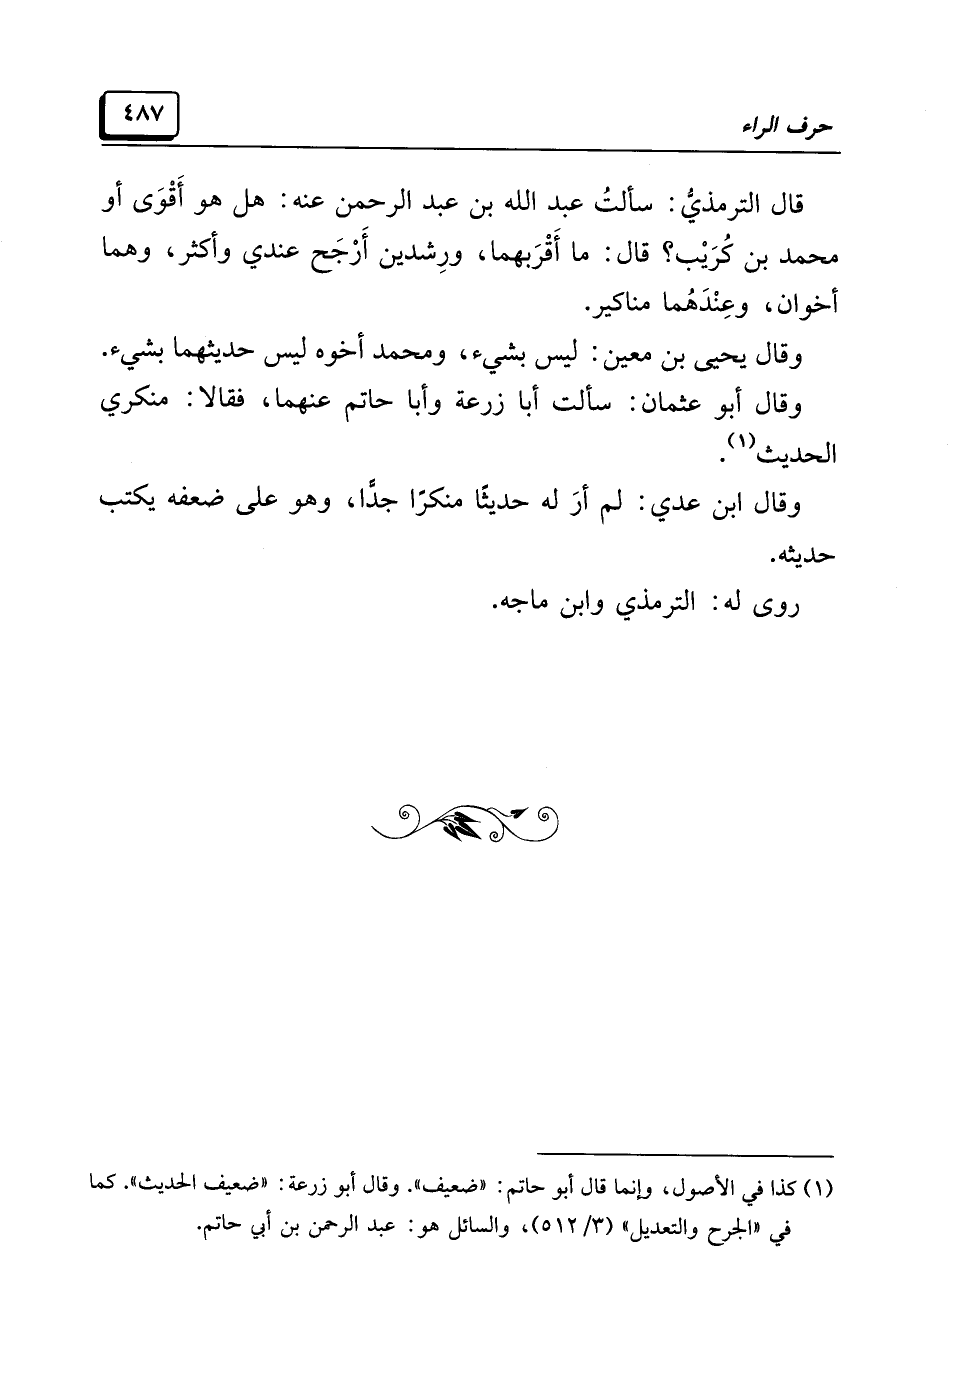 حرف الراء
٤٨٧
قال الترمذيُّ: سألتُ عبد الله بن عبد الرحمن عنه: هل هو أَقْوَى أو
محمد بن كُرَيْب؟ قال: ما أَقْرَبهما، ورِشدين أَرْجَح عندي وأكثر، وهما
أخوان، وعِنْدَهُما مناكير.
وقال يحيى بن معين: ليس بشيء، ومحمد أخوه ليس حديثهما بشيء.
وقال أبو عثمان: سألت أبا زرعة وأبا حاتم عنهما، فقالا: منكري
الحديث(١).
وقال ابن عدي: لم أرَ له حديثًا منكرًا جدًّا، وهو على ضعفه يكتب
حديثه.
روى له: الترمذي وابن ماجه.
(١) كذا في الأصول، وإنما قال أبو حاتم: «ضعيف». وقال أبو زرعة: «ضعيف الحديث». كما
في «الجرح والتعديل» (٣/ ٥١٢)، والسائل هو: عبد الرحمن بن أبي حاتم.